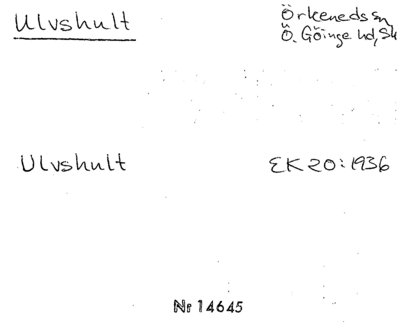 Ulvshult
Örkeneds sn
Ö. Göinge hd, Sk
Ulvshult EK 20:1936
Nr 14645